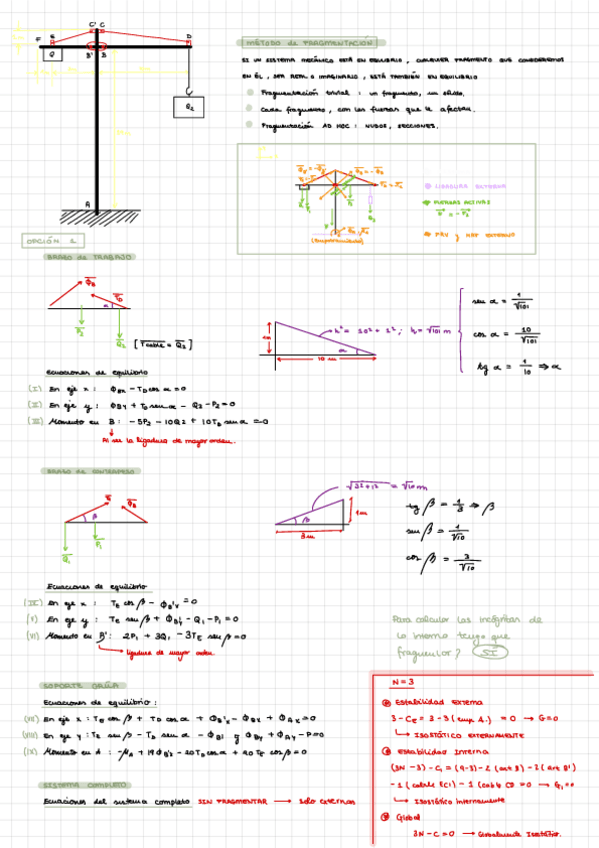 MÉTODO de FRAGMENTACIÓN
SI UN SISTEMA MECÁNICO ESTÁ EN EQUILIBRIO, CUALQUIER FRAGMENTO QUE CONSIDEREMOS
EN ÉL, SEA REAL O IMAGINARIO, ESTÁ TAMBIÉN EN EQUILIBRIO
Fragmentación trivial : un fragmento, un sólido.
Cada fragmento, con las fuerzas que le afectan.
Fragmentación AD HOC : NUDOS, SECCIONES.
F E C' C D
B' B
Q1
Q2
A
LIGADURA EXTERIOR
FUERZAS ACTIVAS
(empotramiento)
OPCIÓN 1
BRAZO de TRABAJO
[Tcable = Q2]
h² = 10² + 1² ; h = √101 m
1m
10 m
α
sen α = 1/√101
cos α = 10/√101
tg α = 1/10 ⇒ α
Ecuaciones de equilibrio
(I) En eje x : ΦBx - TD cos α = 0
(II) En eje y : ΦBy + TD sen α - Q2 - P2 = 0
(III) Momento en B : -5P2 - 10Q2 + 10TD sen α = 0
Al ser la ligadura de mayor orden.
BRAZO de CONTRAPESO
√3²+1² = √10 m
1m
3 m
β
tg β = 1/3 ⇒ β
sen β = 1/√10
cos β = 3/√10
Ecuaciones de equilibrio
En eje x : TE cos β - ΦB'x = 0
(V) En eje y : TE sen β + ΦB'y - Q1 - P1 = 0
(VI) Momento en B' : 2P1 + 3Q1 - 3TE sen β = 0
ligadura de mayor orden.
Para calcular las incógnitas de
lo interno tengo que
fragmentar? SÍ
SOPORTE GRÚA
Ecuaciones de equilibrio :
(VII) En eje x : TE cos β + TD cos α + ΦB'x - ΦBx + ΦAx = 0
(VIII) En eje y :
(IX) Momento en A :
SISTEMA COMPLETO
Ecuaciones del sistema completo SIN FRAGMENTAR → solo externas
N = 3
Estabilidad Externa
3 - CE = 3 - 3 (emp A.) = 0 → G=0
ISOSTÁTICO EXTERNAMENTE
Estabilidad Interna
(3N - 3) - Ci = (9-3) - 2 (art B) - 2 (art B')
Isostático internamente
Global
3N - C = 0 → Globalmente Isostático.